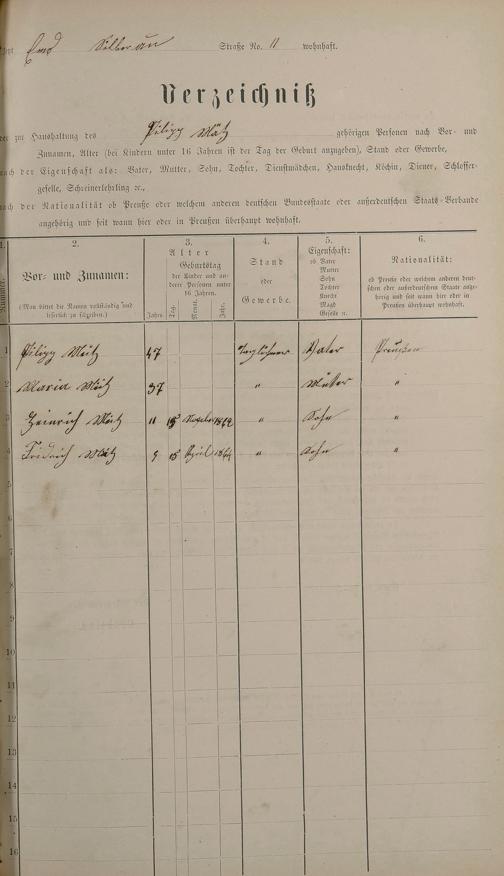 Ems Silberau Straße No. 11 wohnhaft.
Verzeichniß
der zur Haushaltung des Pilipp Mätz gehörigen Personen nach Vor- und
Zunamen, Alter (bei Kindern unter 16 Jahren ist der Tag der Geburt anzugeben), Stand oder Gewerbe,
nach der Eigenschaft als: Vater, Mutter, Sohn, Tochter, Dienstmädchen, Hausknecht, Köchin, Diener, Schlosser-
geselle, Schreinerlehrling ꝛc.,
nach der Nationalität ob Preuße oder welchem anderen deutschen Bundesstaate oder außerdeutschen Staats-Verbande
angehörig und seit wann hier oder in Preußen überhaupt wohnhaft.
1. 2. 3. 4. 5. 6.
Nummer.
Vor- und Zunamen:
(Man bittet die Namen vollständig und
leserlich zu schreiben.)
Alter
Geburtstag
der Kinder und an-
derer Personen unter
16 Jahren.
Jahre. Tag. Monat. Jahr.
Stand
oder
Gewerbe.
Eigenschaft:
ob Vater
Mutter
Sohn
Tochter
Knecht
Magd
Geselle ꝛc.
Nationalität:
ob Preuße oder welchem anderen deut-
schen oder außerdeutschen Staate ange-
hörig und seit wann hier oder in
Preußen überhaupt wohnhaft.
1 Pilipp Mätz 47 Taglöhner Vater Preußen
2 Maria Mätz 37 " Mutter "
3 Heinrich Mätz 11 15 1862 " Sohn "
4 Fridrich Mätz 9 15 April 1864 " Sohn "
5
6
7
8
9
10
11
12
13
14
15
16